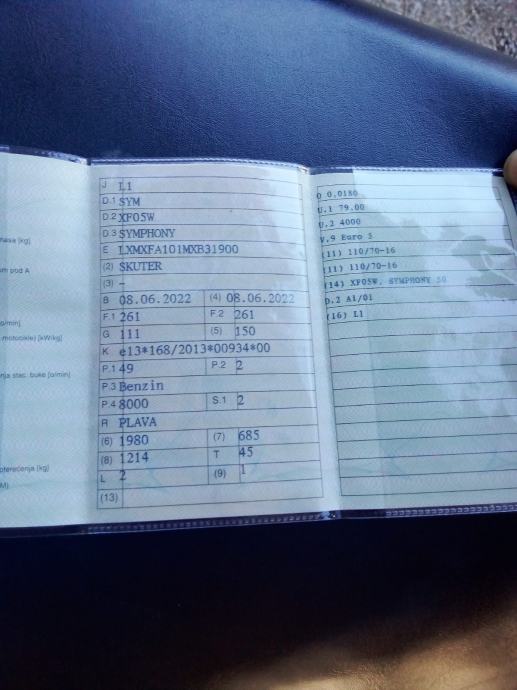 masa [kg]
om pod A
motocikle) [kW/kg]
nja stac. buke [o/min]
opterećenja [kg]
J L1
D.1 SYM
D.2 XF05W
D.3 SYMPHONY
E LXMXFA101MXB31900
(2) SKUTER
(3) -
B 08.06.2022 (4) 08.06.2022
F.1 261 F.2 261
G 111 (5) 150
K e13*168/2013*00934*00
P.1 49 P.2 2
P.3 Benzin
P.4 8000 S.1 2
R PLAVA
(6) 1980 (7) 685
(8) 1214 T 45
L 2 (9) 1
(13)
Q 0,0180
U.1 79.00
U.2 4000
V.9 Euro 5
(11) 110/70-16
(11) 110/70-16
(14) XF05W, SYMPHONY 50
D.2 A1/01
(16) L1